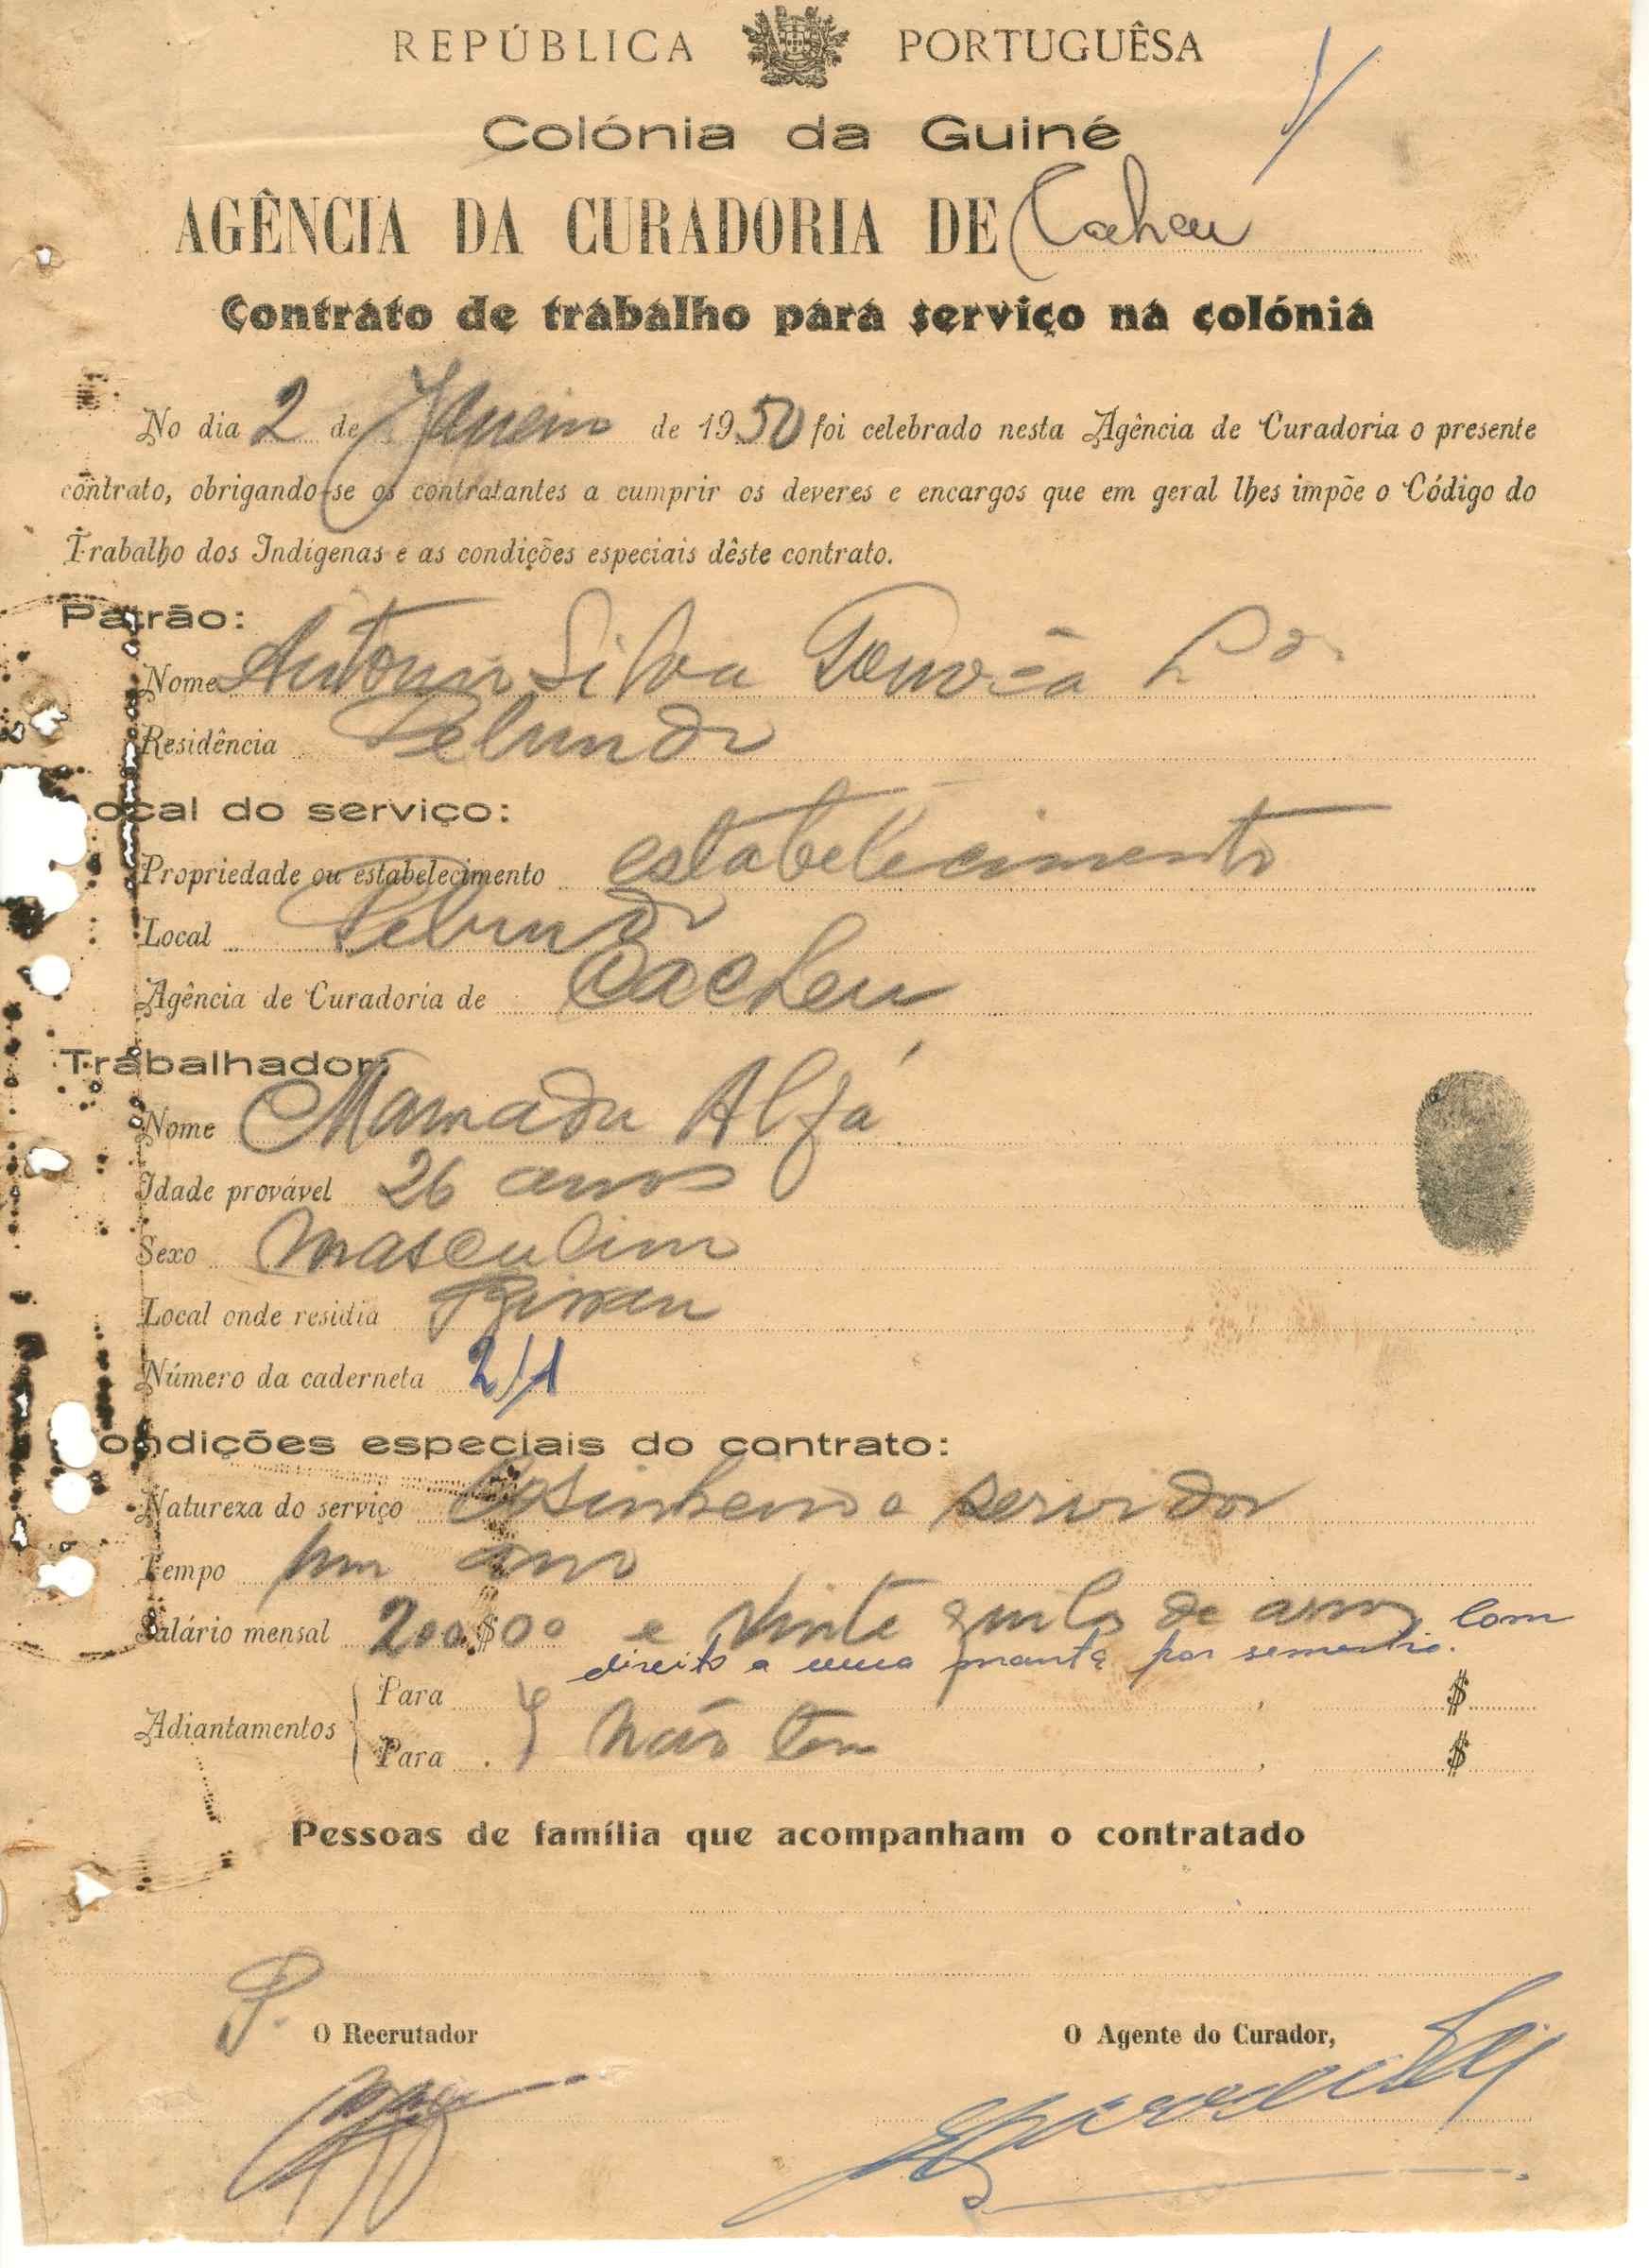 REPÚBLICA PORTUGUÊSA
Colónia da Guiné
AGÊNCIA DA CURADORIA DE Caheu
Contrato de trabalho para serviço na colónia
No dia 2 de Janeiro de 1950 foi celebrado nesta Agência de Curadoria o presente
contrato, obrigando-se os contratantes a cumprir os deveres e encargos que em geral lhes impõe o Código do
Trabalho dos Indígenas e as condições especiais dêste contrato.
Patrão:
Nome António Silva Gouvêa L da.
Residência Pelundo
ocal do serviço:
Propriedade ou estabelecimento estabelecimento
Local Pelundo
Agência de Curadoria de Cacheu
Trabalhador:
Nome Mamadu Alfá
Idade provável 26 anos
Sexo masculino
Local onde residia Bissau
Número da caderneta 2/1
ondições especiais do contrato:
Natureza do serviço Cosinheiro e servidor
Tempo um ano
Salário mensal 200$00 e vinte quilos de arroz com
direito a uma manta por semestre.
Adiantamentos
Para $
Para não tem $
Pessoas de família que acompanham o contratado
P. O Recrutador
O Agente do Curador,